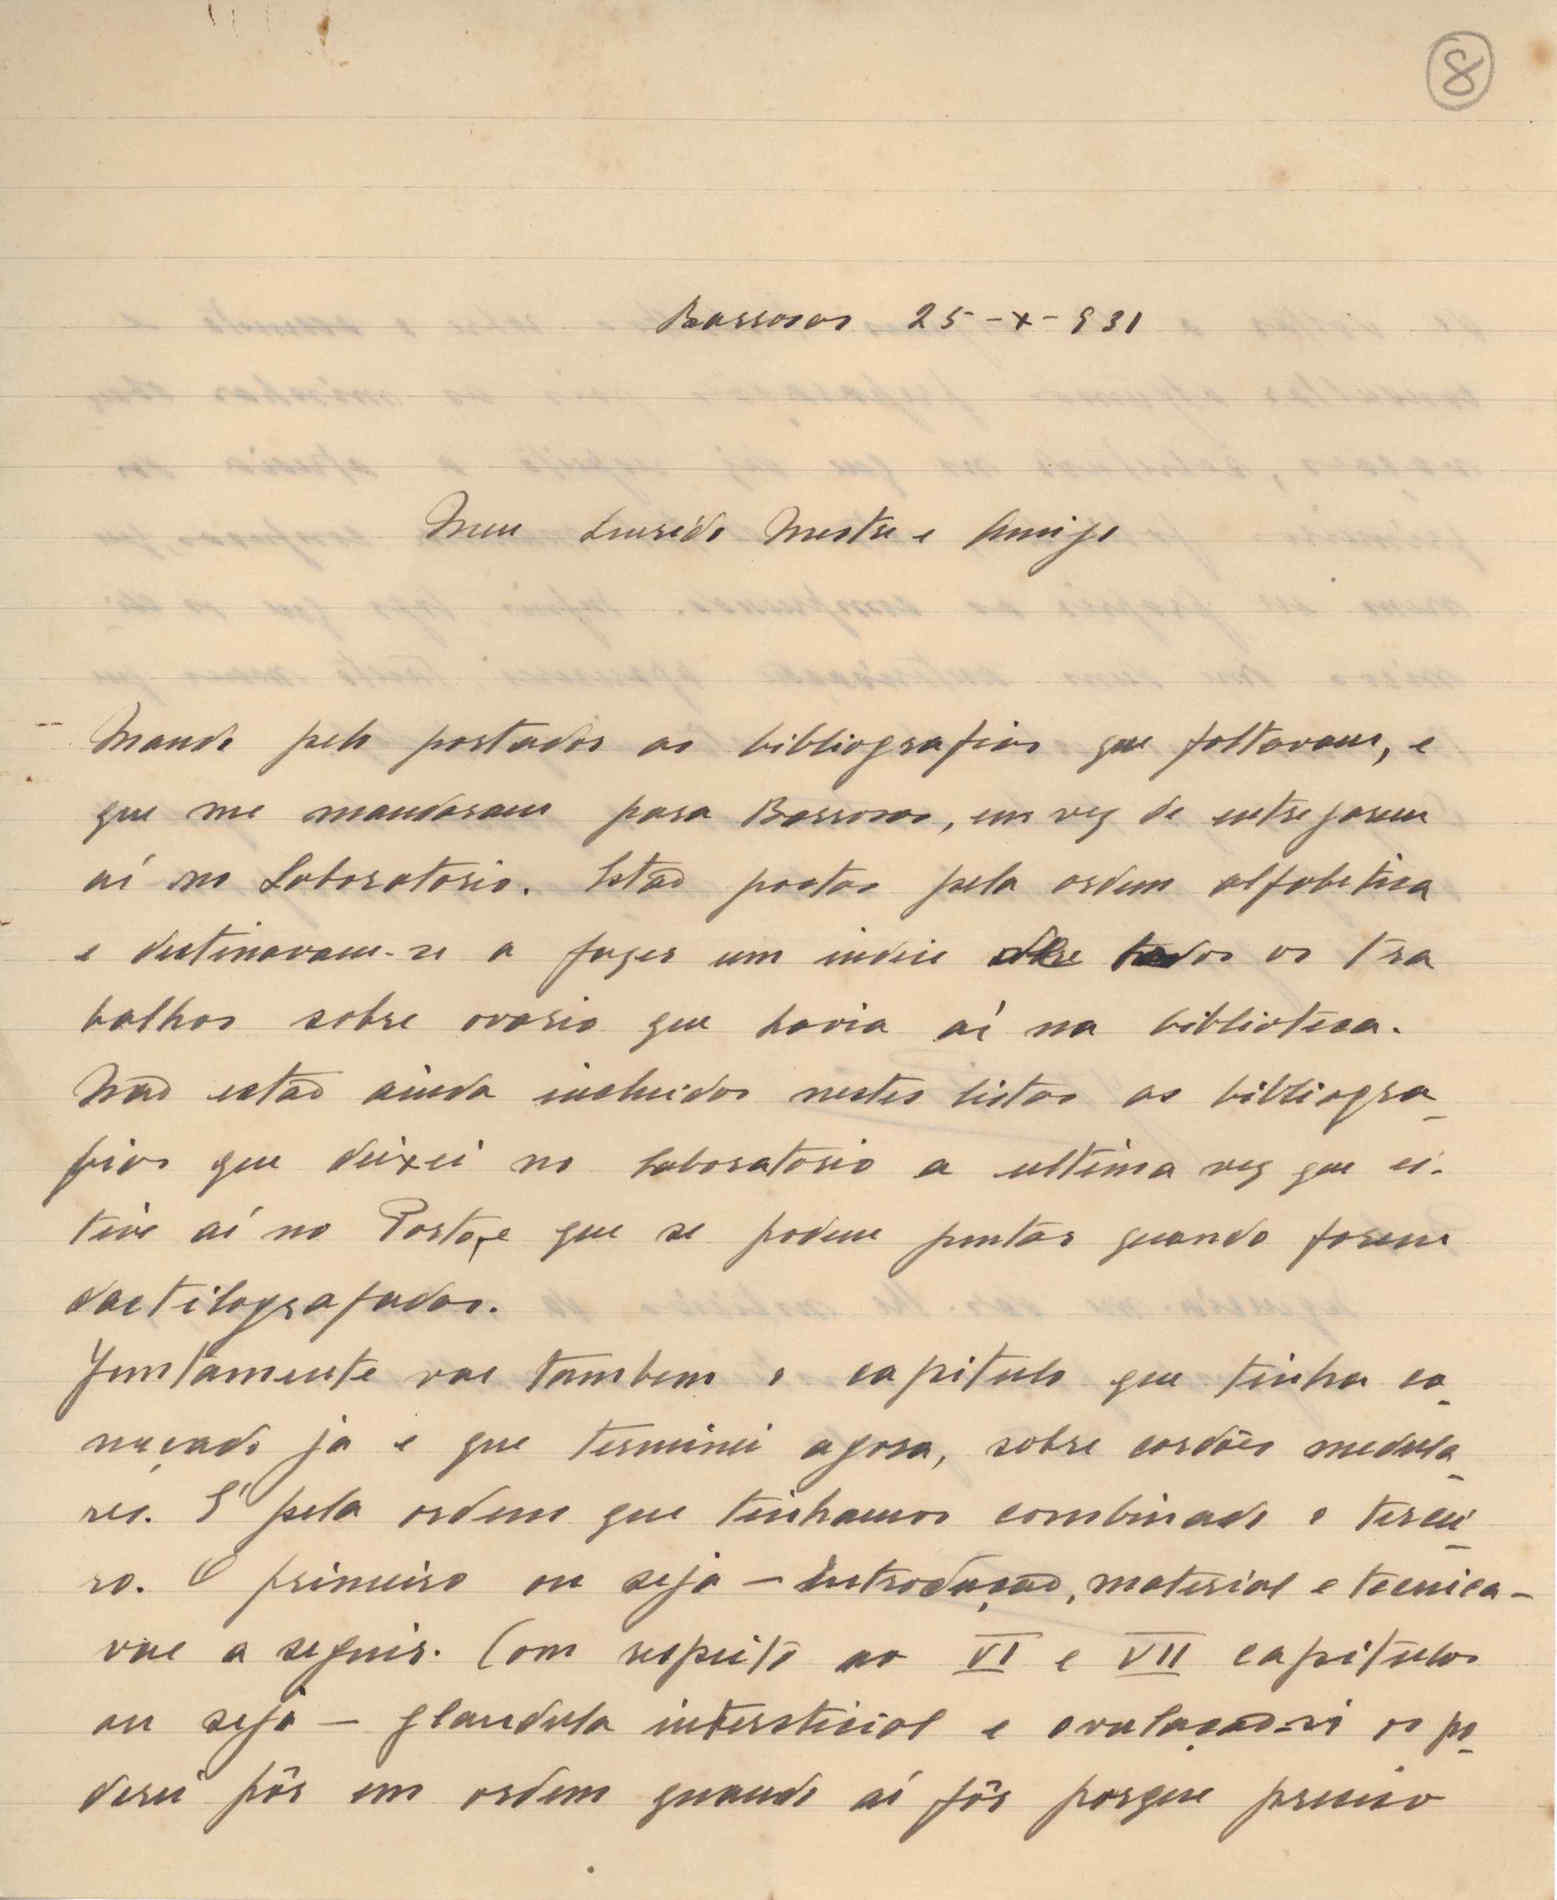 8
Barrosas 25-X-931
Meu Querido Mestre e Amigo
Mando pelo portador as bibliografias que faltavam, e
que me mandaram para Barrosas, em vez de entregarem
aí no Laboratorio. Estão postas pela ordem alfabetica
e destinavam-se a fazer um indice de todos os tra
balhos sobre ovario que havia aí na biblioteca.
Não estão ainda incluidos nestes listas as bibliogra_
fias que deixei no laboratorio a ultima vez que es-
tive aí no Porto, e que se podem juntar quando forem
dactilografadas.
Juntamente vae tambem o capitulo que tinha co_
meçado ja e que terminei agora, sobre cordões medula_
res. E' pela ordem que tinhamos combinado o tercei_
ro. O primeiro ou seja - Introdução, material e tecnica -
vae a seguir. Com respeito ao VI e VII capitulos
ou seja - glandula intersticial e ovulação - só os po_
derei pôr em ordem quando aí fôr porque preciso